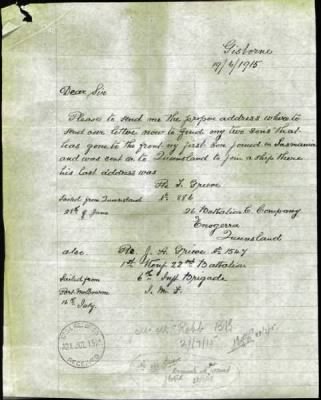 Gisborne
19/7/1915
Dear Sir
Please to send me the proper address where to
send our letters now to find my two sons that
has gone to the front my first son joined in Tasmania
and was sent on to Queensland to join a ship there
his last address was
Pte T. Grieve
Sailed from Queensland No 886
28th of June 26 Battalion C. Company
Enogerra
Queensland
also. Pte. J. A. Grieve No 1547
1st Reinf 22nd Battalion
Sailed from 6th Inft Brigade
Port Melbourne A. I. F.
16th July.
RECEIVED
21/7/15